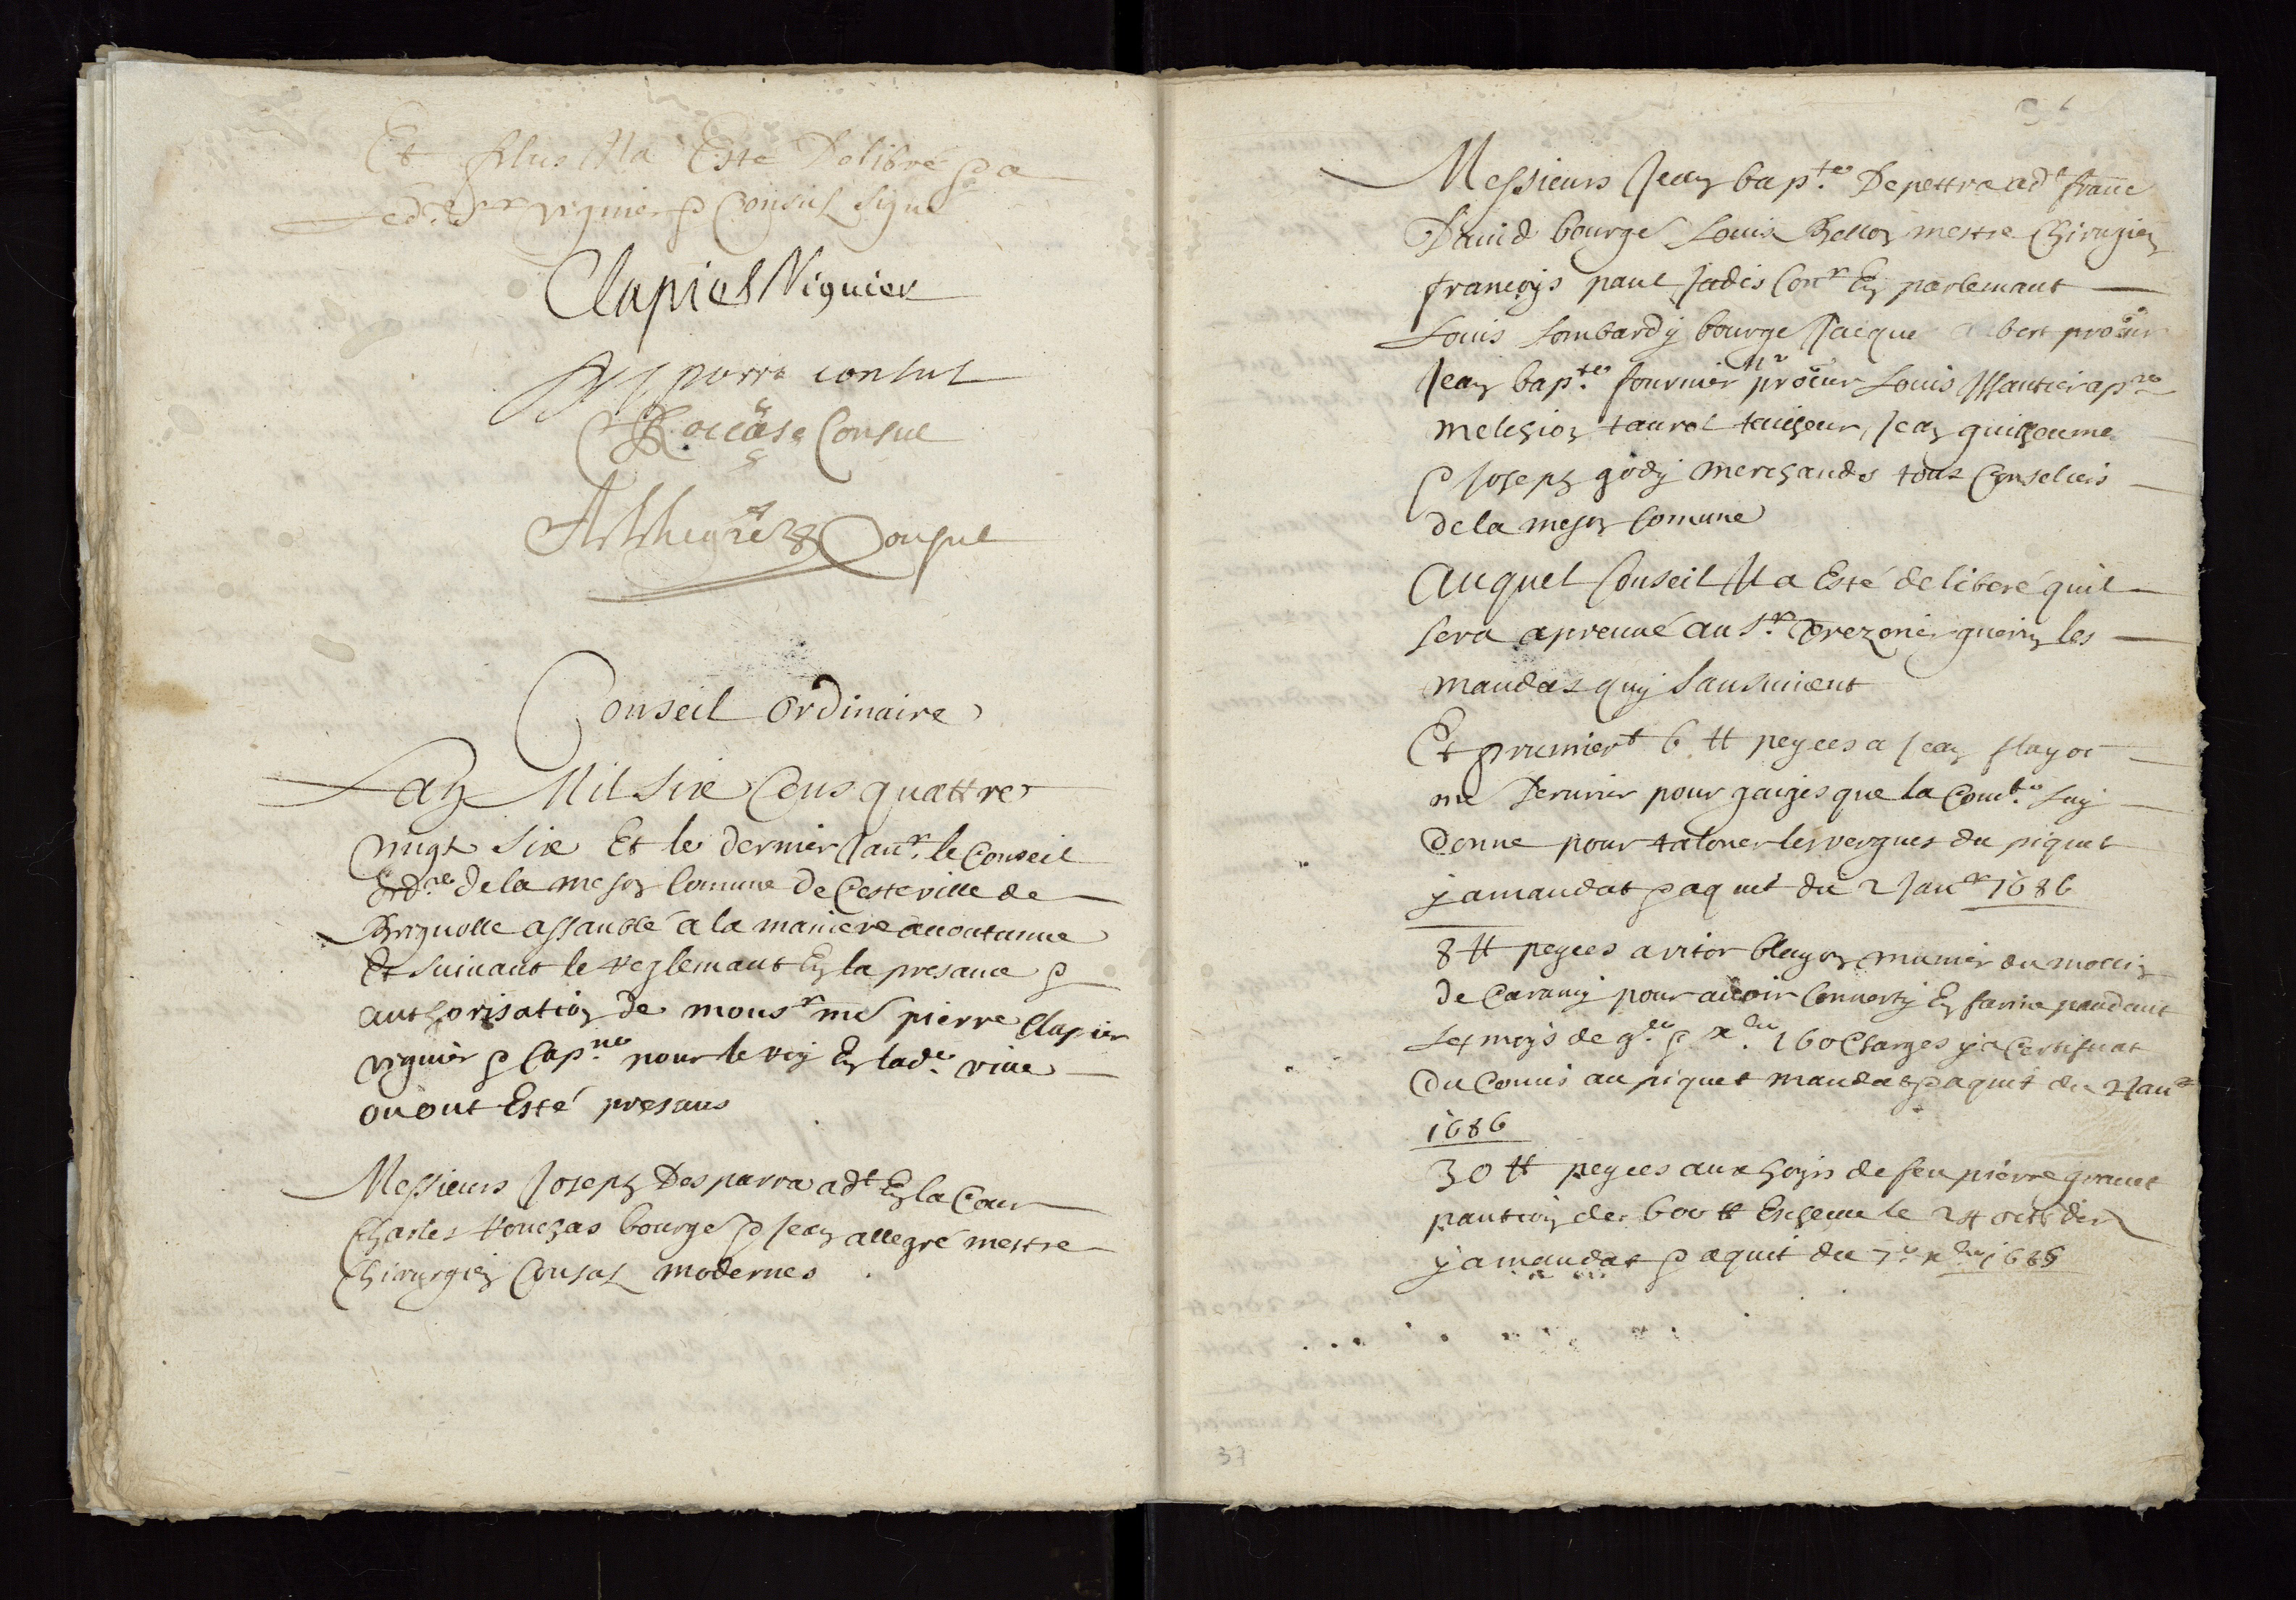 Et plus n'a Esté Delibré & a
led. Sr viguier & Consul signe
Clapiel Viguier
parra consul
Consul
Consul
Conseil ordinaire
Lan Mil Six Cens quattre
vingt Six Et le dernier Janr. le Conseil
ordre de la meson Comune de Ceste ville de
Brignolle assanblé a la maniere acoutume
Et suivant le reglemant En la presance &
authorisation de monsr me pierre Clapier
viguier & Capne pour le roy En lade ville
ou ont Esté presans
Messieurs Joseph Desparra adt En la Cour
Charles rouchas bourge & Jean allegre mestre
Chirurgien Consuls modernes
Messieurs Jean bapte Depettra adt
David bourge Louis Bellon mestre Chirugien
françoys paul Jadis Conr En parlemant
Louis Lombardy bourge Jacque albert procur
Jean bapte fournier Mr procur Louis apre
melchion taurel tailheur, Jean guilheume
& Joseph gody merchands tous Conseliers
de la meson Comune
Auquel Conseil Il a Esté deliberé quil
sera aprouué au Sr Trezorier guerin les
mandas quy sansuiuent
Et premiert 6 tt peyees a Jean flayoc
me Serurier pour gaiges que la Comte luy
donne pour taloner les vergues du piquet
y a mandat & aquit du 2 Janr 1686
8 tt peyees a vitor blayon munier du moulin
de Caramy pour auoir Conuerty En farine pandant
les moys de 9re & xbre 160 Charges y a Certificat
du Comis au piquet mandat & aquit du 2 Janr
1686
30 tt peyees aux hoyrs de feu pierre
pantion de 600 tt Escheue le 24 octr der
y a mandat & aquit du 7e xbre 1685
37